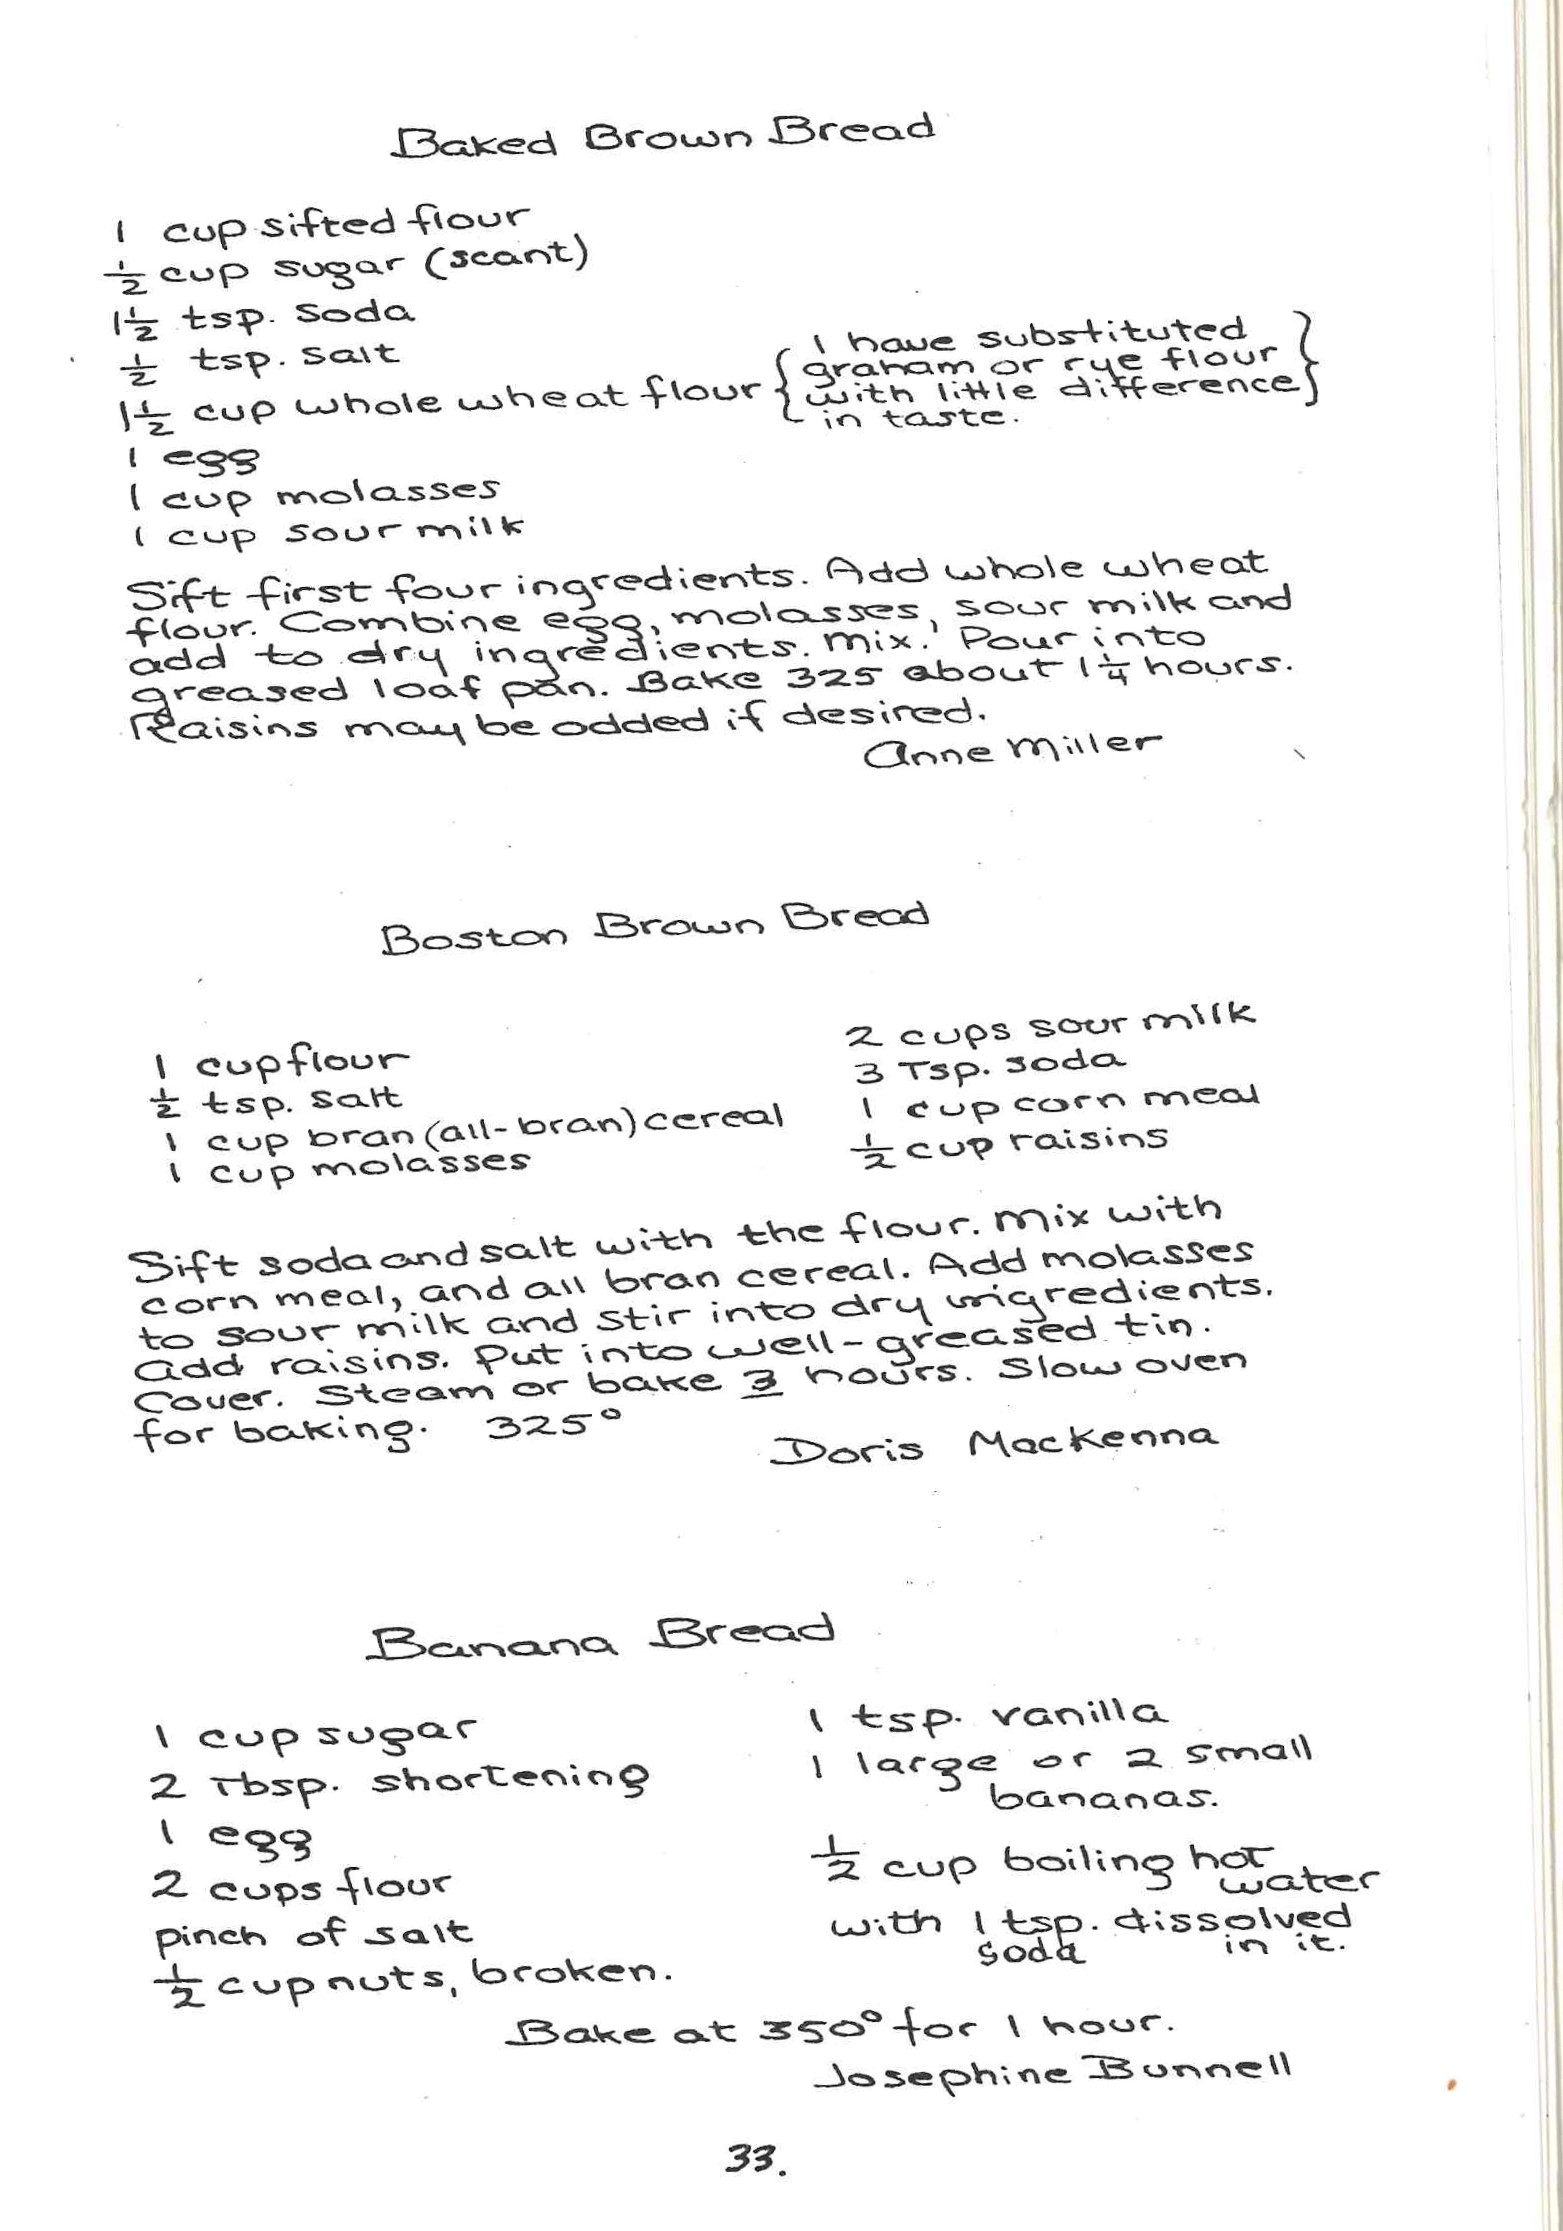 Baked Brown Bread
1 cup sifted flour
½ cup sugar (scant)
1½ tsp. soda
½ tsp. salt
1½ cup whole wheat flour { I have substituted
graham or rye flour
with little difference
in taste. }
1 egg
1 cup molasses
1 cup sour milk
Sift first four ingredients. Add whole wheat
flour. Combine egg, molasses, sour milk and
add to dry ingredients. Mix. Pour into
greased loaf pan. Bake 325 about 1¼ hours.
Raisins may be added if desired.
Anne Miller
Boston Brown Bread
1 cup flour
½ tsp. salt
1 cup bran (all-bran) cereal
1 cup molasses
2 cups sour milk
3 Tsp. soda
1 cup corn meal
½ cup raisins
Sift soda and salt with the flour. Mix with
corn meal, and all bran cereal. Add molasses
to sour milk and stir into dry ingredients.
Add raisins. Put into well-greased tin.
Cover. Steam or bake 3 hours. Slow oven
for baking. 325°
Doris MacKenna
Banana Bread
1 cup sugar
2 Tbsp. shortening
1 egg
2 cups flour
pinch of salt
½ cup nuts, broken.
1 tsp. vanilla
1 large or 2 small
bananas.
½ cup boiling hot
water
with 1 tsp. dissolved
soda in it.
Bake at 350° for 1 hour.
Josephine Bunnell
33.